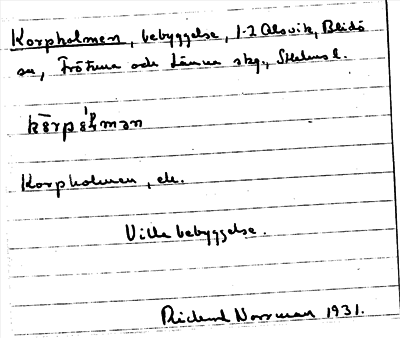 Korpholmen, bebyggelse, 1.2 Alsvik, Blidö
sn, Frötuna och Länna skg., Sthlms l.
Korpholmen, ek.
Villabebyggelse.
Norrman 1931.